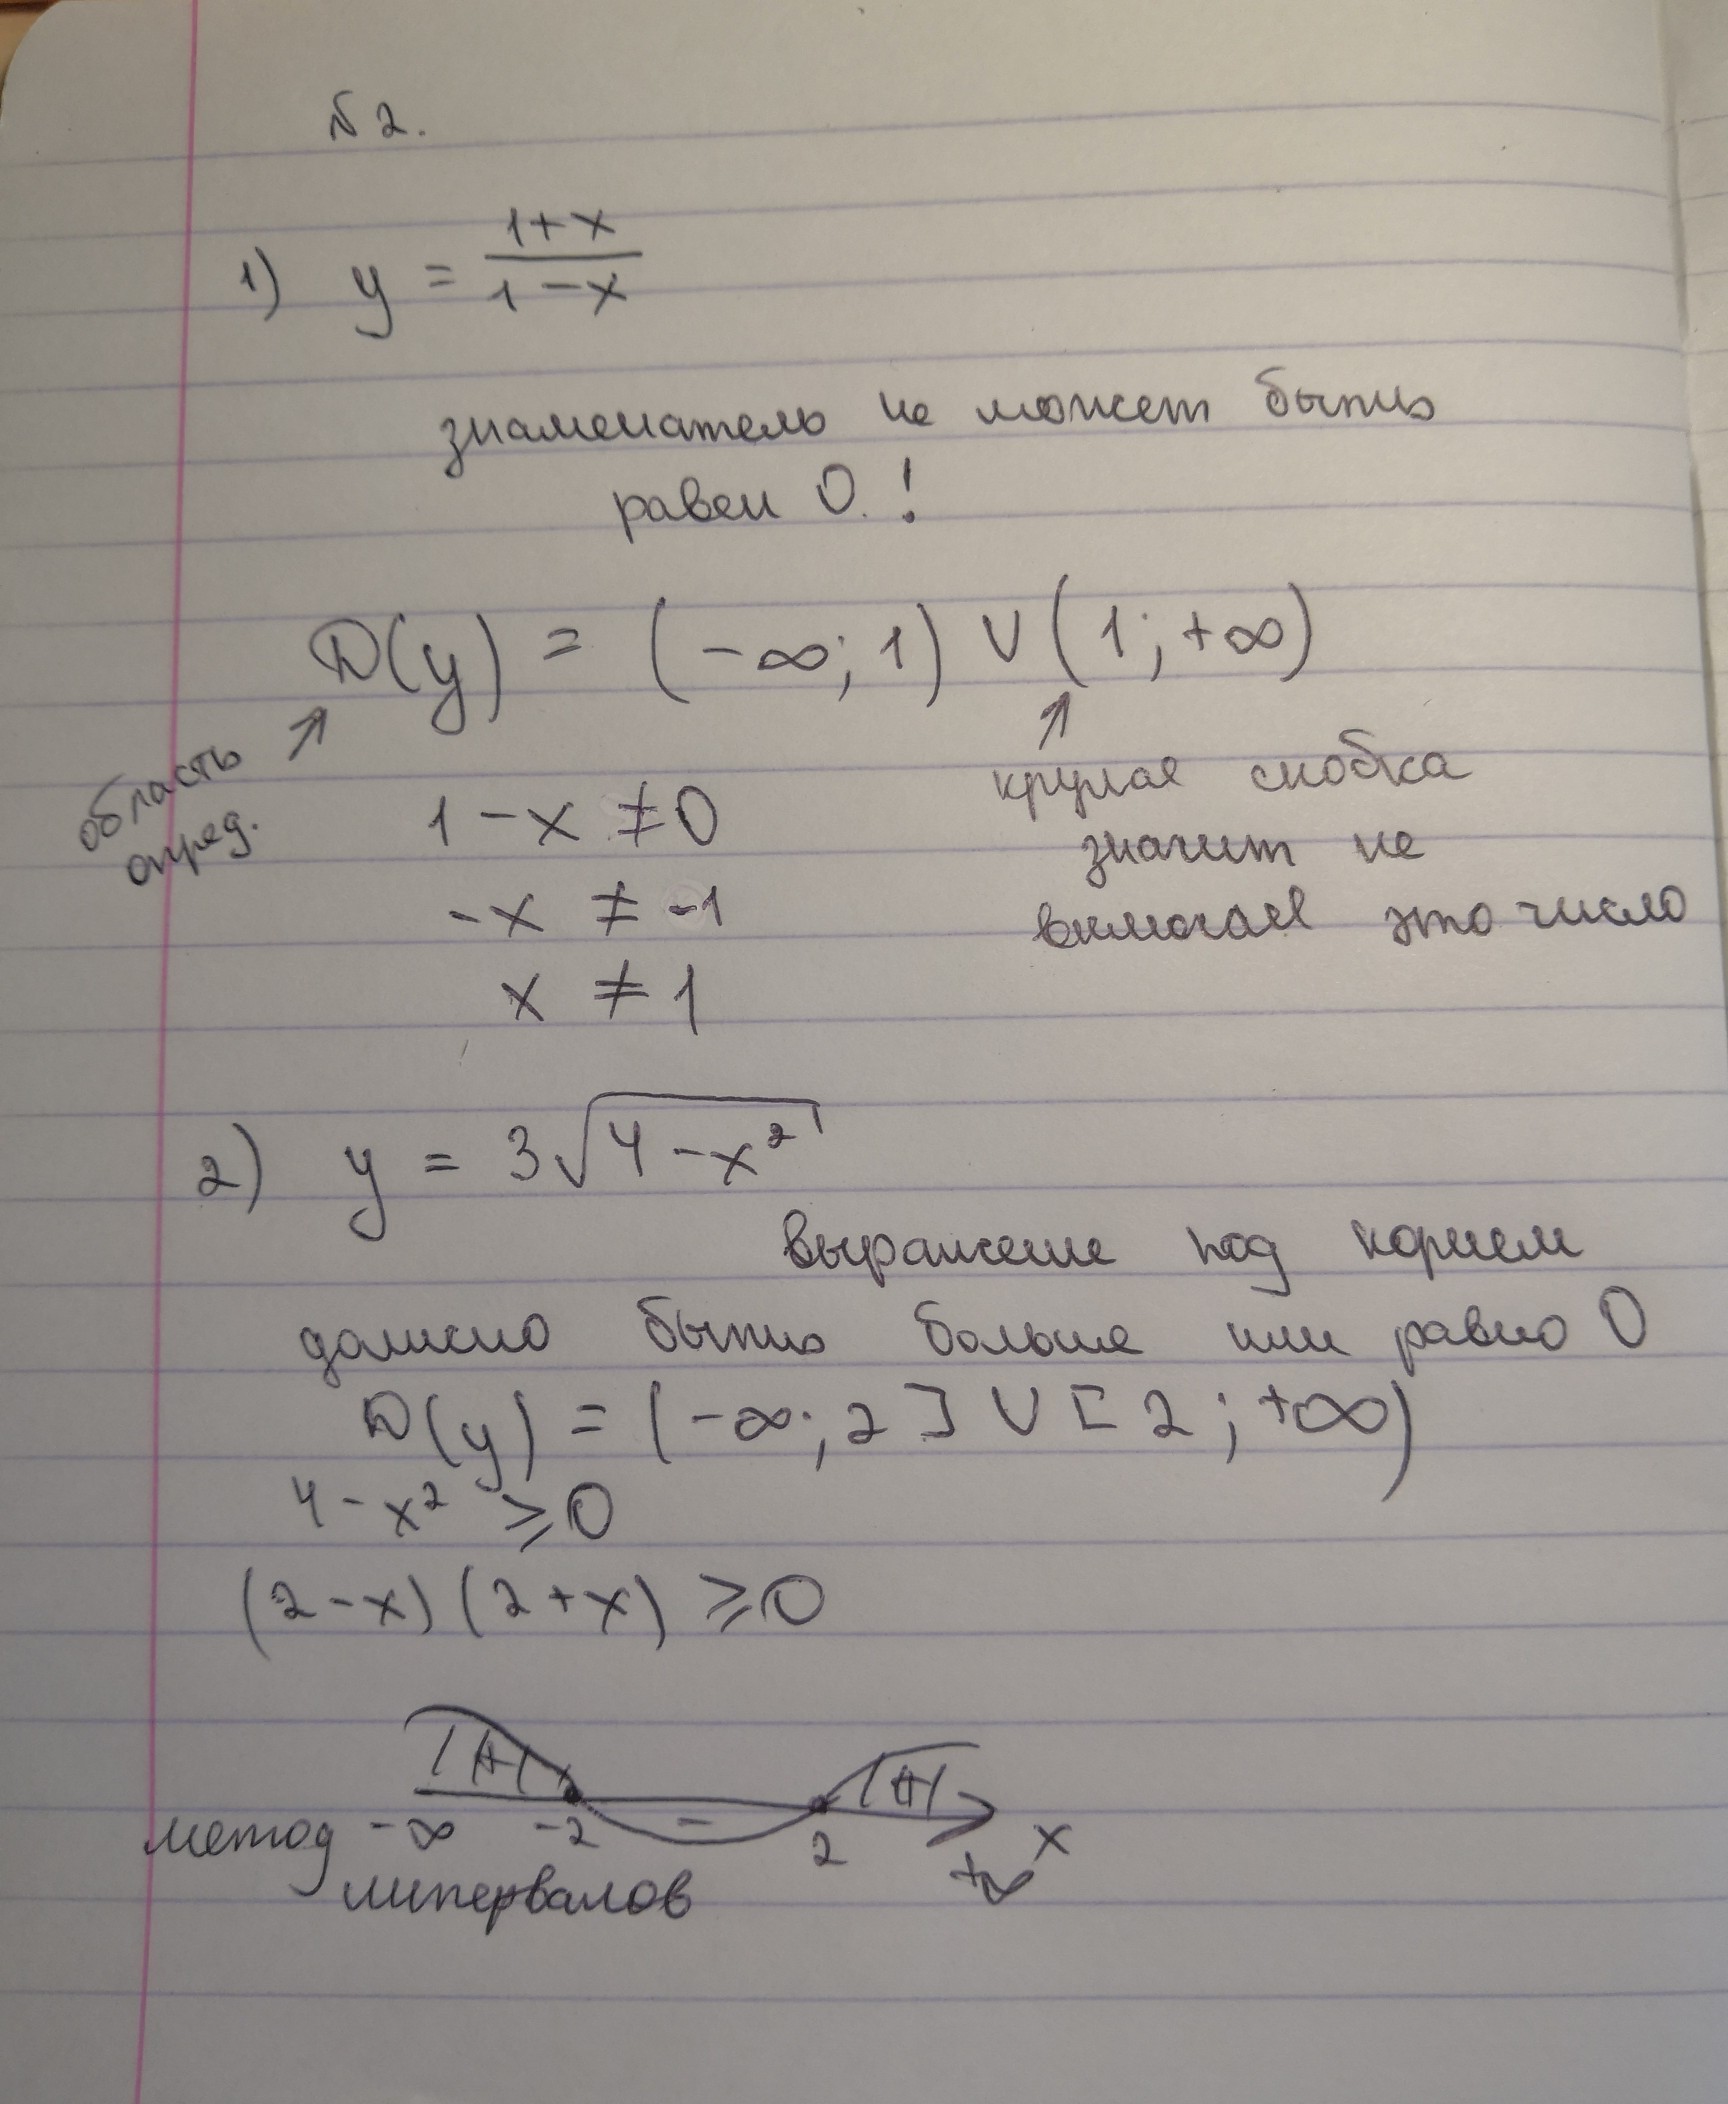 №2.
1) y = \frac{1+x}{1-x}
знаменатель не может быть
равен 0.!
D(y) = (-∞; 1) ∪ (1; +∞)
область
опред.
круглая скобка
значит не
включая это число
1 - x ≠ 0
-x ≠ -1
x ≠ 1
2) y = 3√(4-x²)
выражение под корнем
должно быть больше или равно 0
D(y) = (-∞; 2] ∪ [2; +∞)
4 - x² ≥ 0
(2-x)(2+x) ≥ 0
+ - +
-∞ -2 2 +∞ x
метод
интервалов